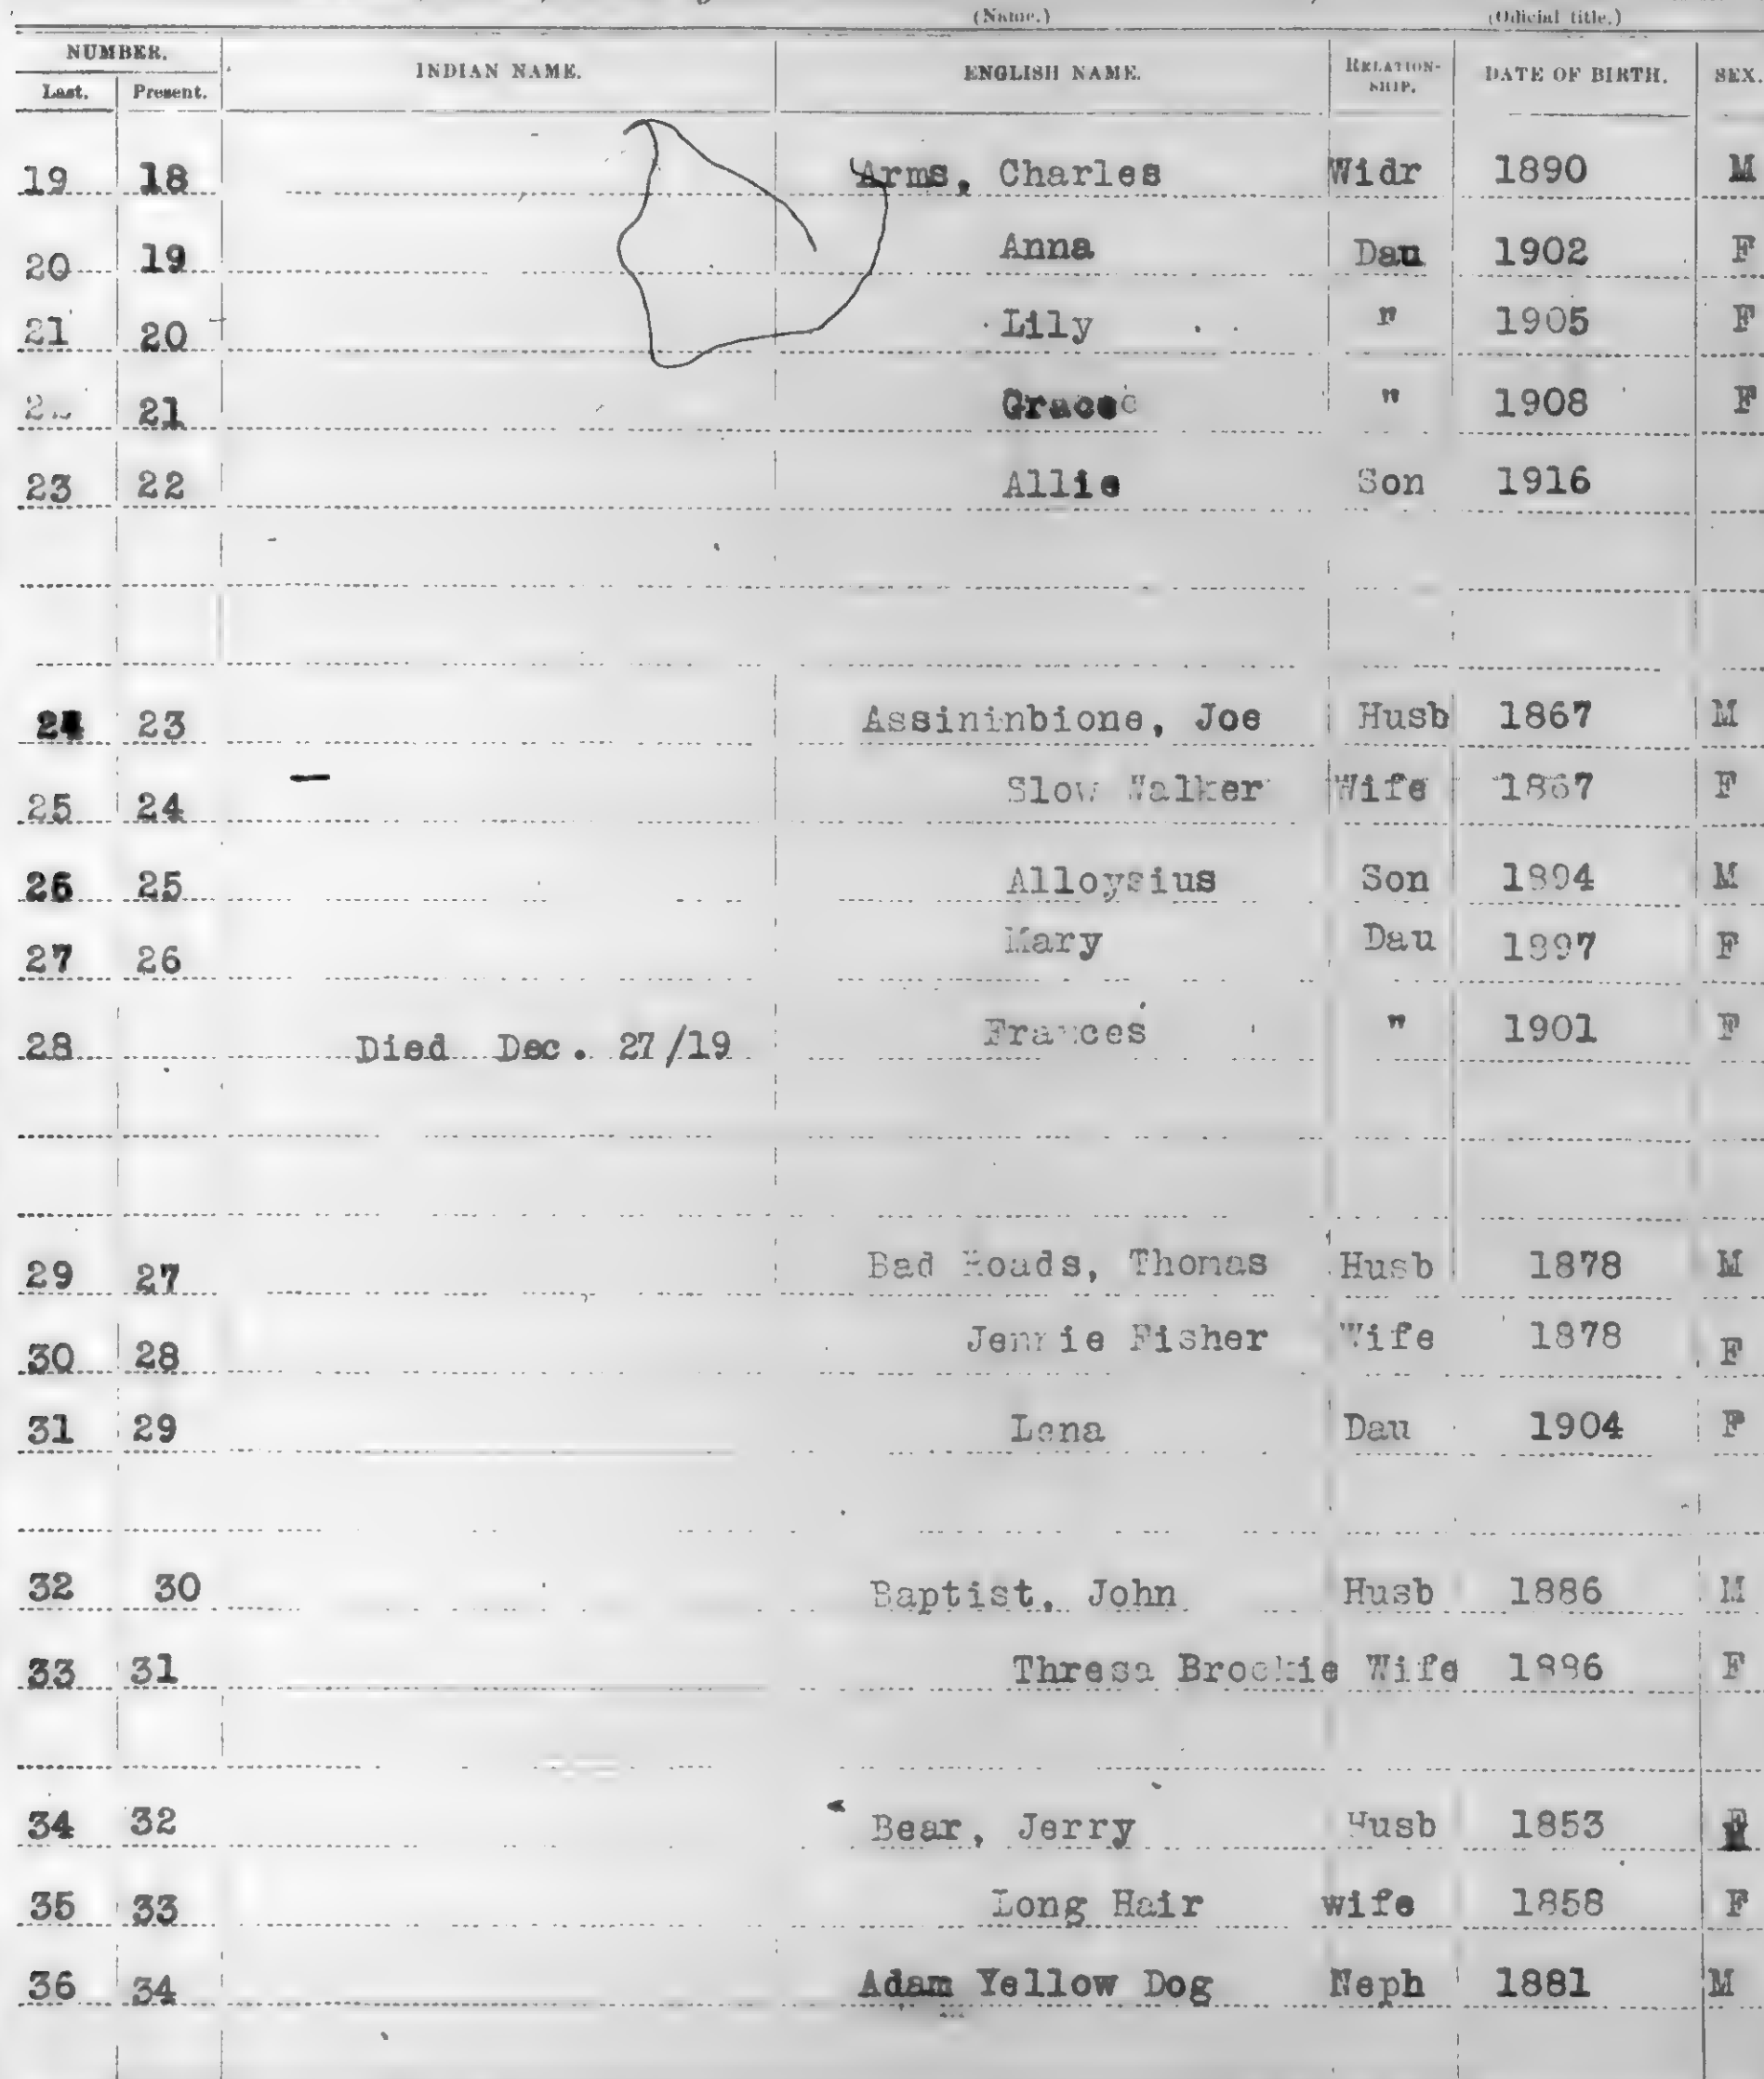 (Name.) (Official title.)
NUMBER. INDIAN NAME. ENGLISH NAME. RELATION-SHIP. DATE OF BIRTH. SEX.
Last. Present.
19 18 Arms, Charles Widr 1890 M
20 19 Anna Dau 1902 F
21 20 Lily " 1905 F
21 Grace " 1908 F
23 22 Allie Son 1916
24 23 Assininbione, Joe Husb 1867 M
25 24 Slow Walker Wife 1867 F
26 25 Alloysius Son 1894 M
27 26 Mary Dau 1897 F
28 Died Dec. 27/19 Frances " 1901 F
29 27 Bad Roads, Thomas Husb 1878 M
30 28 Jennie Fisher Wife 1878 F
31 29 Lena Dau 1904 F
32 30 Baptist, John Husb 1886 M
33 31 Thresa Brockie Wife 1896 F
34 32 Bear, Jerry Husb 1853
35 33 Long Hair wife 1858 F
36 34 Adam Yellow Dog Neph 1881 M